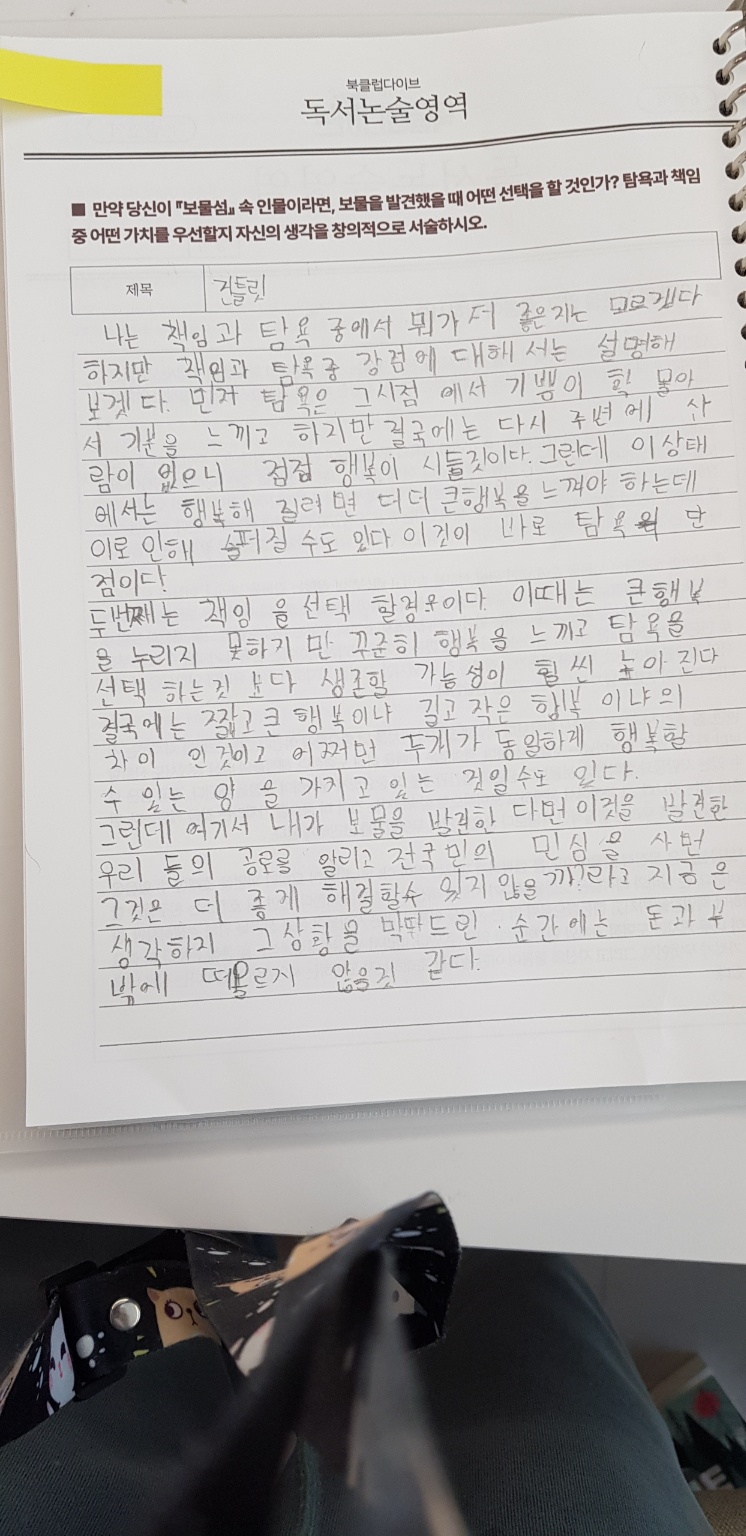 북클럽다이브
독서논술영역
■ 만약 당신이 『보물섬』 속 인물이라면, 보물을 발견했을 때 어떤 선택을 할 것인가? 탐욕과 책임
중 어떤 가치를 우선할지 자신의 생각을 창의적으로 서술하시오.
제목 건틀릿
나는 책임과 탐욕 중에서 뭐가 더 좋은지는 모르겠다
하지만 책임과 탐욕중 강점에 대해서는 설명해
보겟다. 먼저 탐욕은 그시점 에서 기쁨이 확 몰아
서 기분을 느끼고 하지만 결국에는 다시 주변에 사
람이 없으니 점점 행복이 시들것이다. 그런데 이상태
에서는 행복해 질려면 더더 큰행복을 느껴야 하는데
이로 인해 슬퍼질 수도 있다 이것이 바로 탐욕의 단
점이다.
두번째는 책임 을 선택 할경우이다. 이때는 큰행복
을 누리지 못하기 만 꾸준히 행복을 느끼고 탐욕을
선택 하는것 보다 생존할 가능성이 훨씬 높아 진다
결국에는 짧고 큰 행복이냐 길고 작은 행복 이냐의
차이 인것이고 어쩌면 두개가 동일하게 행복할
수 있는 양 을 가지고 있는 것일수도 있다.
그런데 여기서 내가 보물을 발견한 다면 이것을 발견한
우리 들의 공로를 알리고 전국민의 민심을 사면
그것은 더 좋게 해결할수 있지 않을 까?라고 지금은
생각하지 그상황을 막딱드린 순간에는 돈과 부
밖에 떠올르지 않을것 같다.